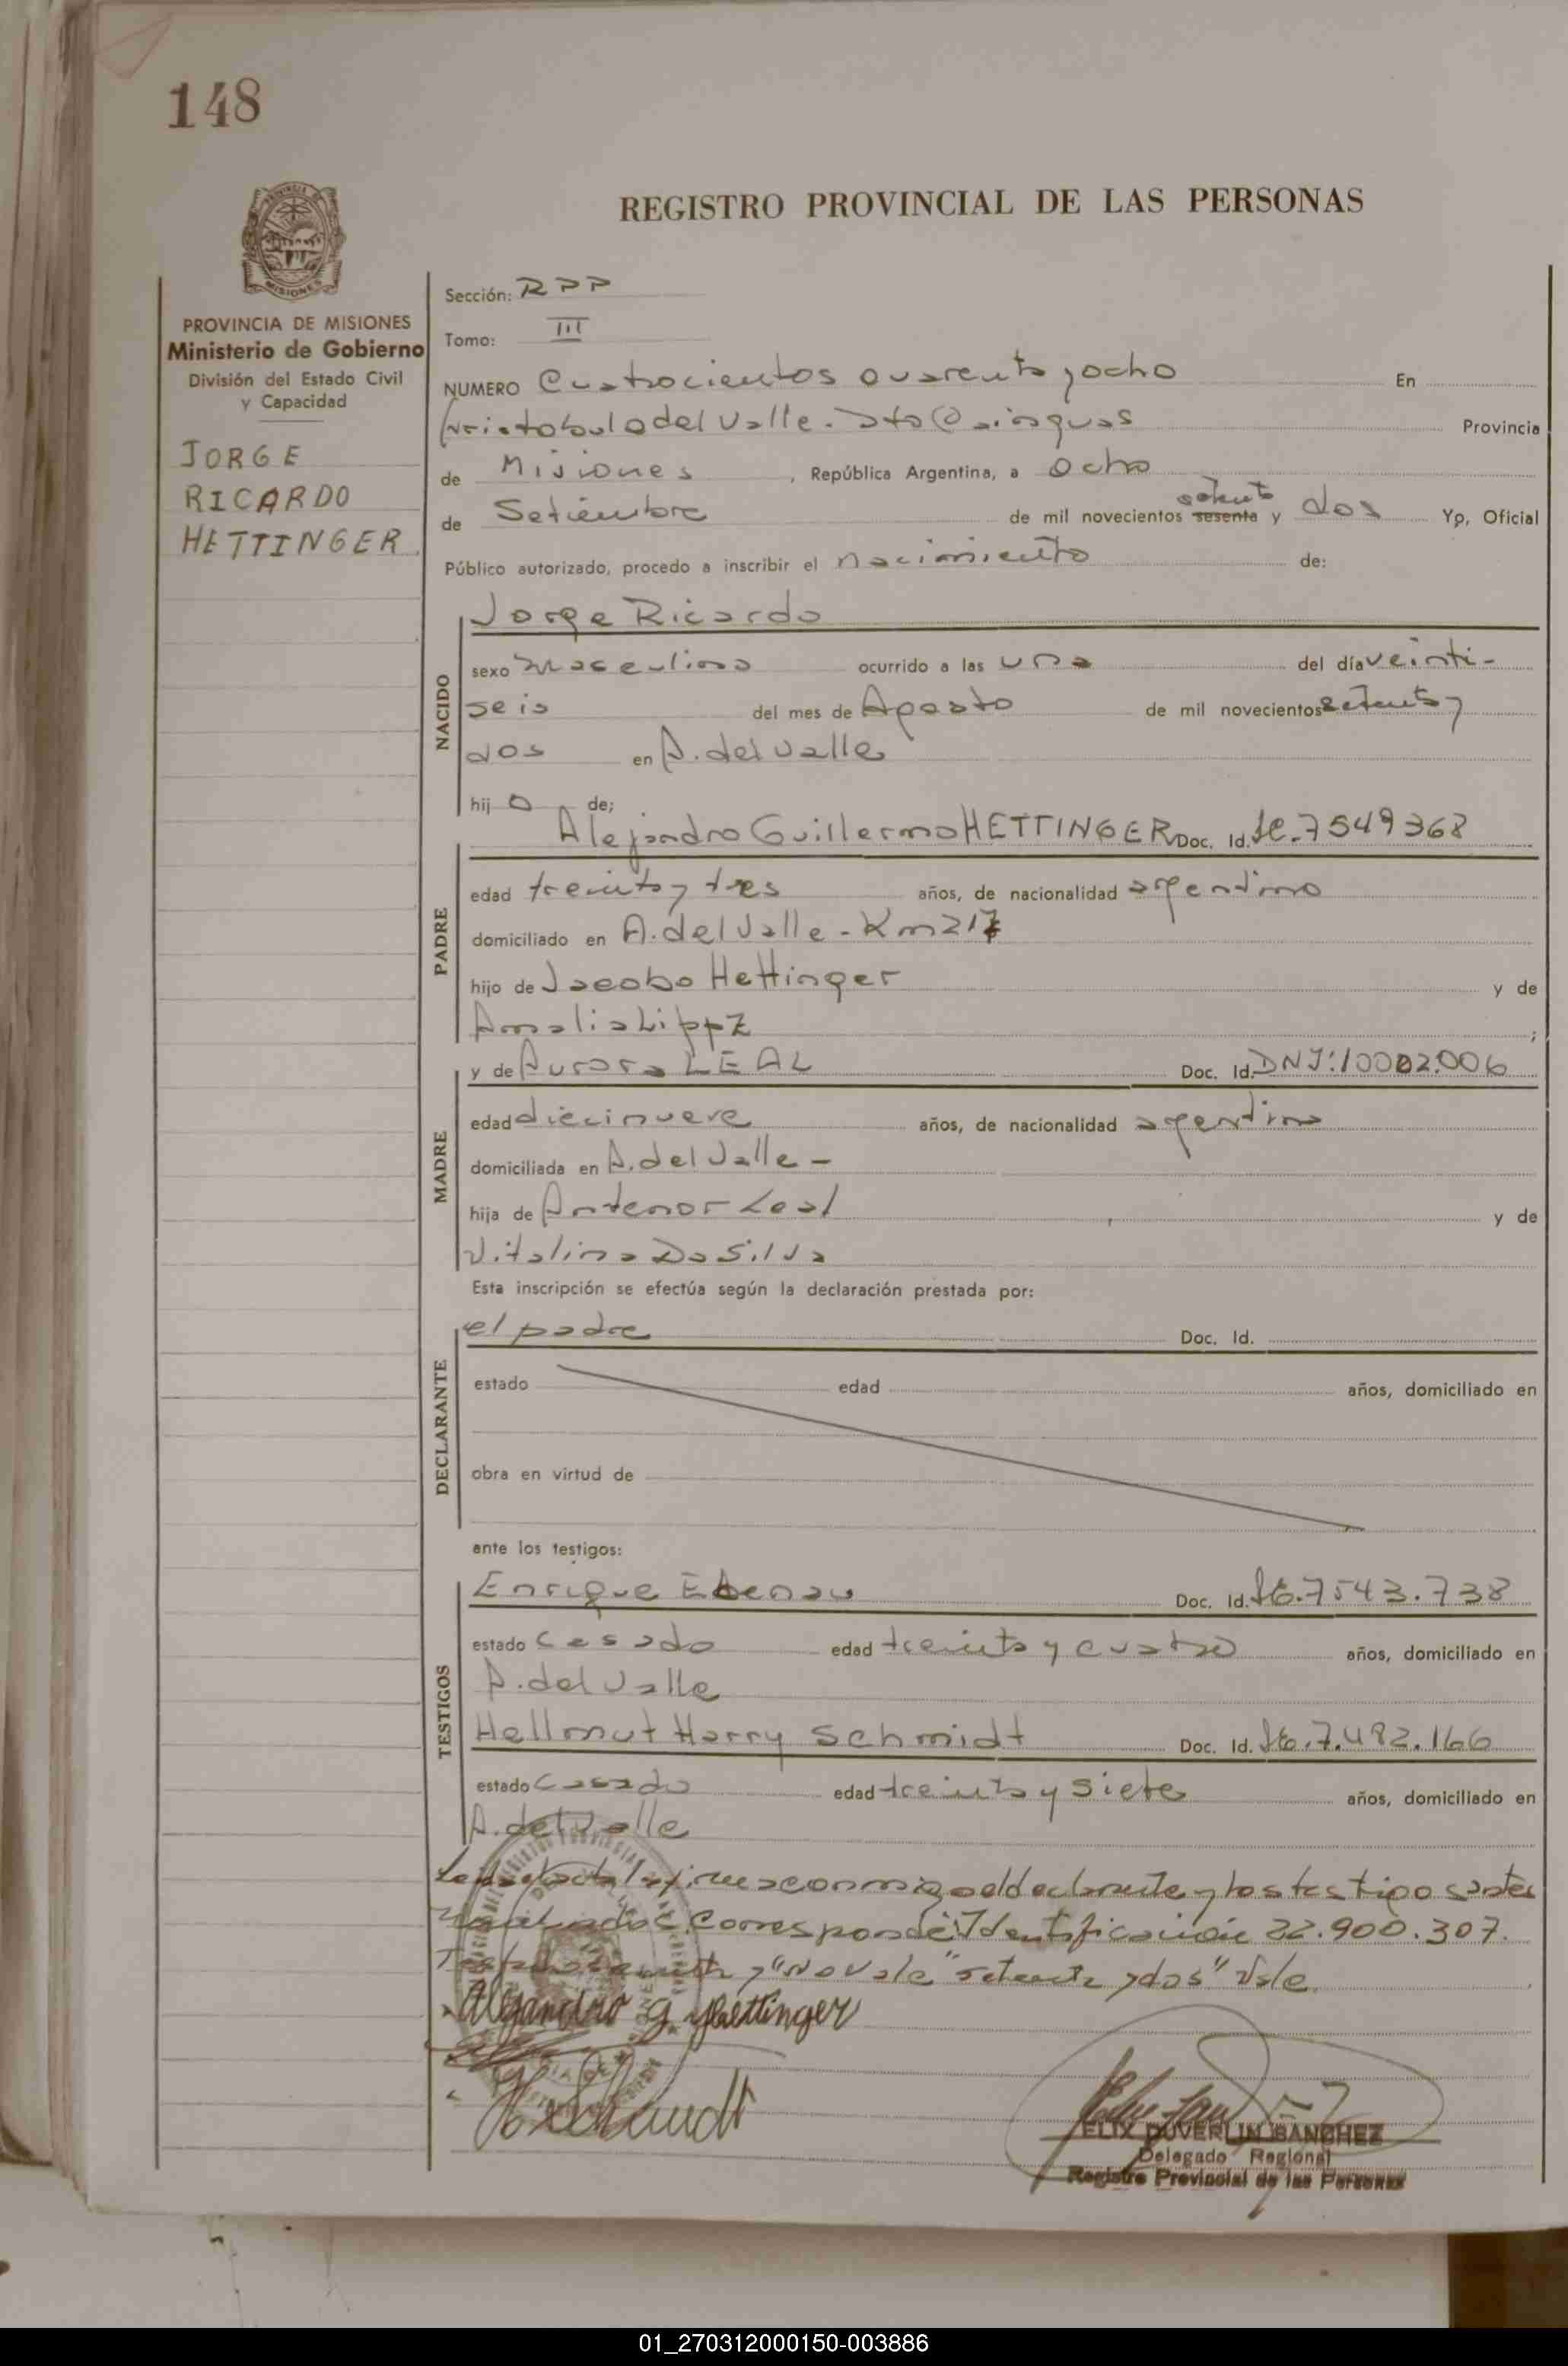 148
REGISTRO PROVINCIAL DE LAS PERSONAS
MISIONES
PROVINCIA DE MISIONES
Ministerio de Gobierno
División del Estado Civil
y Capacidad
JORGE
RICARDO
HETTINGER
Sección: RPP
Tomo: III
NUMERO Cuatrocientos cuarenta y ocho En
Aristobulo del Valle - Dto Cainguas Provincia
de Misiones, República Argentina, a Ocho
setenta
de Setiembre de mil novecientos sesenta y dos Yo, Oficial
Público autorizado, procedo a inscribir el nacimiento de:
NACIDO
Jorge Ricardo
sexo masculino ocurrido a las una del día veinti-
seis del mes de Agosto de mil novecientos setenta y
dos en A. del Valle
hijo de;
PADRE
Alejandro Guillermo HETTINGER Doc. Id. LE. 7549368
edad treinta y tres años, de nacionalidad argentino
domiciliado en A. del Valle - Km 217
hijo de Jacobo Hettinger y de
Amalia Lippz ;
MADRE
y de Aurora LEAL Doc. Id. DNI: 10002.006
edad diecinueve años, de nacionalidad argentina
domiciliada en A. del Valle -
hija de Antenor Leal y de
Vitalina Da Silva
Esta inscripción se efectúa según la declaración prestada por:
DECLARANTE
el padre Doc. Id.
estado edad años, domiciliado en
obra en virtud de
ante los testigos:
TESTIGOS
Enrique Ebenau Doc. Id. LE. 7543.738
estado casado edad treinta y cuatro años, domiciliado en
A. del Valle
Hellmut Harry Schmidt Doc. Id. LE. 7.482.166
estado casado edad treinta y siete años, domiciliado en
A. del Valle
Leida el acta la firma conmigo el declarante y los testigos antes
Corresponde Identificación 22.900.307.
y "No vale" setenta y dos" Vale
Alejandro G. Hettinger
H Schmidt
FELIX DUVERLIN SANCHEZ
Delegado Regional
Registro Provincial de las Personas
01_270312000150-003886